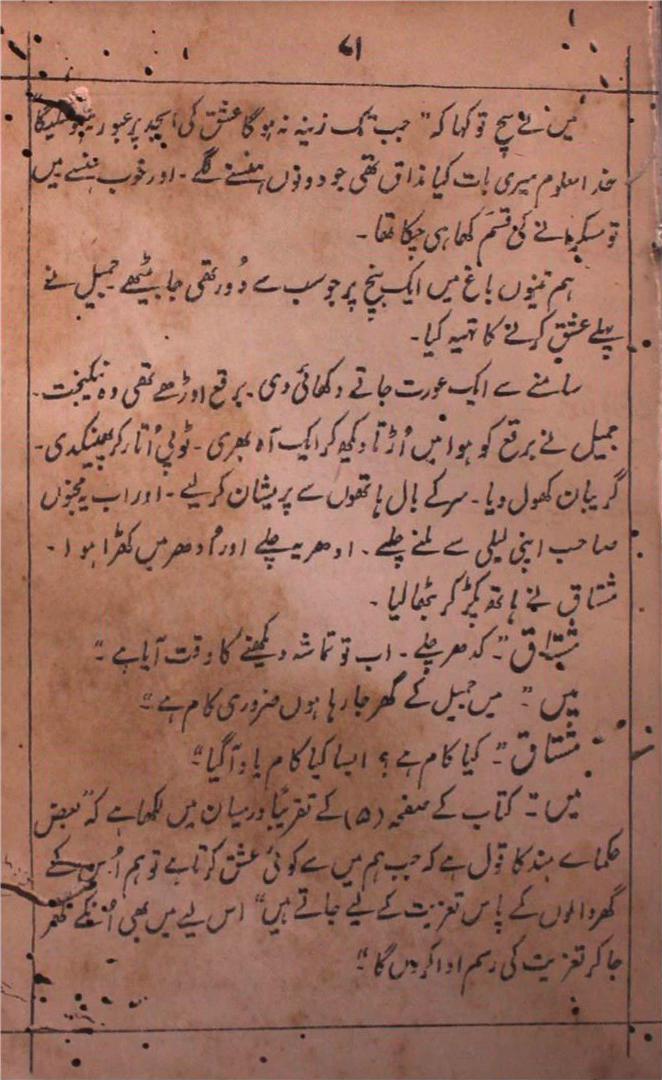 ۷۱
میں نے سچ تو کہا کہ" جب تک زینہ نہ ہوگا عشق کی ابجد پر عبور
خدا معلوم میری بات کیا مذاق تھی جو دونوں ہنسنے لگے ۔ اور خوب ہنسے میں
تو مسکرانے کی قسم کھا ہی چکا تھا ۔
ہم تینوں باغ میں ایک بنچ پر جو سب سے دُور تھی جا بیٹھے جمیل نے
پہلے عشق کرنے کا تہیہ کیا۔
سامنے سے ایک عورت جاتے دکھائی دی ۔ برقع اوڑھے تھی وہ نیکبخت ۔
جمیل نے برقع کو ہوا میں اُڑتا دیکھ کر ایک آہ بھری ۔ ٹوپی اُتار کر پھینکدی ۔
گریبان کھول دیا ۔ سر کے بال ہاتھوں سے پریشان کر لیے ۔ اور اب مجنوں
صاحب اپنی لیلی سے ملنے چلے ۔ ادھر یہ چلے اور اُدھر میں کھڑا ہوا ۔
مشتاق نے ہاتھ پکڑ کر بٹھا لیا ۔
مشتاق " ۔ کدھر چلے ۔ اب تو تماشہ دیکھنے کا وقت آیا ہے "۔
میں " ۔ میں جمیل کے گھر جا رہا ہوں ضروری کام ہے "۔
مشتاق " ۔ کیا کام ہے ؟ ایسا کیا کام یاد آگیا "
میں " ۔ کتاب کے صفحہ (۵) کے تقریباً درمیان میں لکھا ہے کہ " بعض
حکماے ہند کا قول ہے کہ جب ہم میں سے کوئی عشق کرتا ہے تو ہم اُس کے
گھر والوں کے پاس تعزیت کے لیے جاتے ہیں " اس لیے میں بھی اُنکے گھر
جا کر تعزیت کی رسم ادا کروں گا "۔